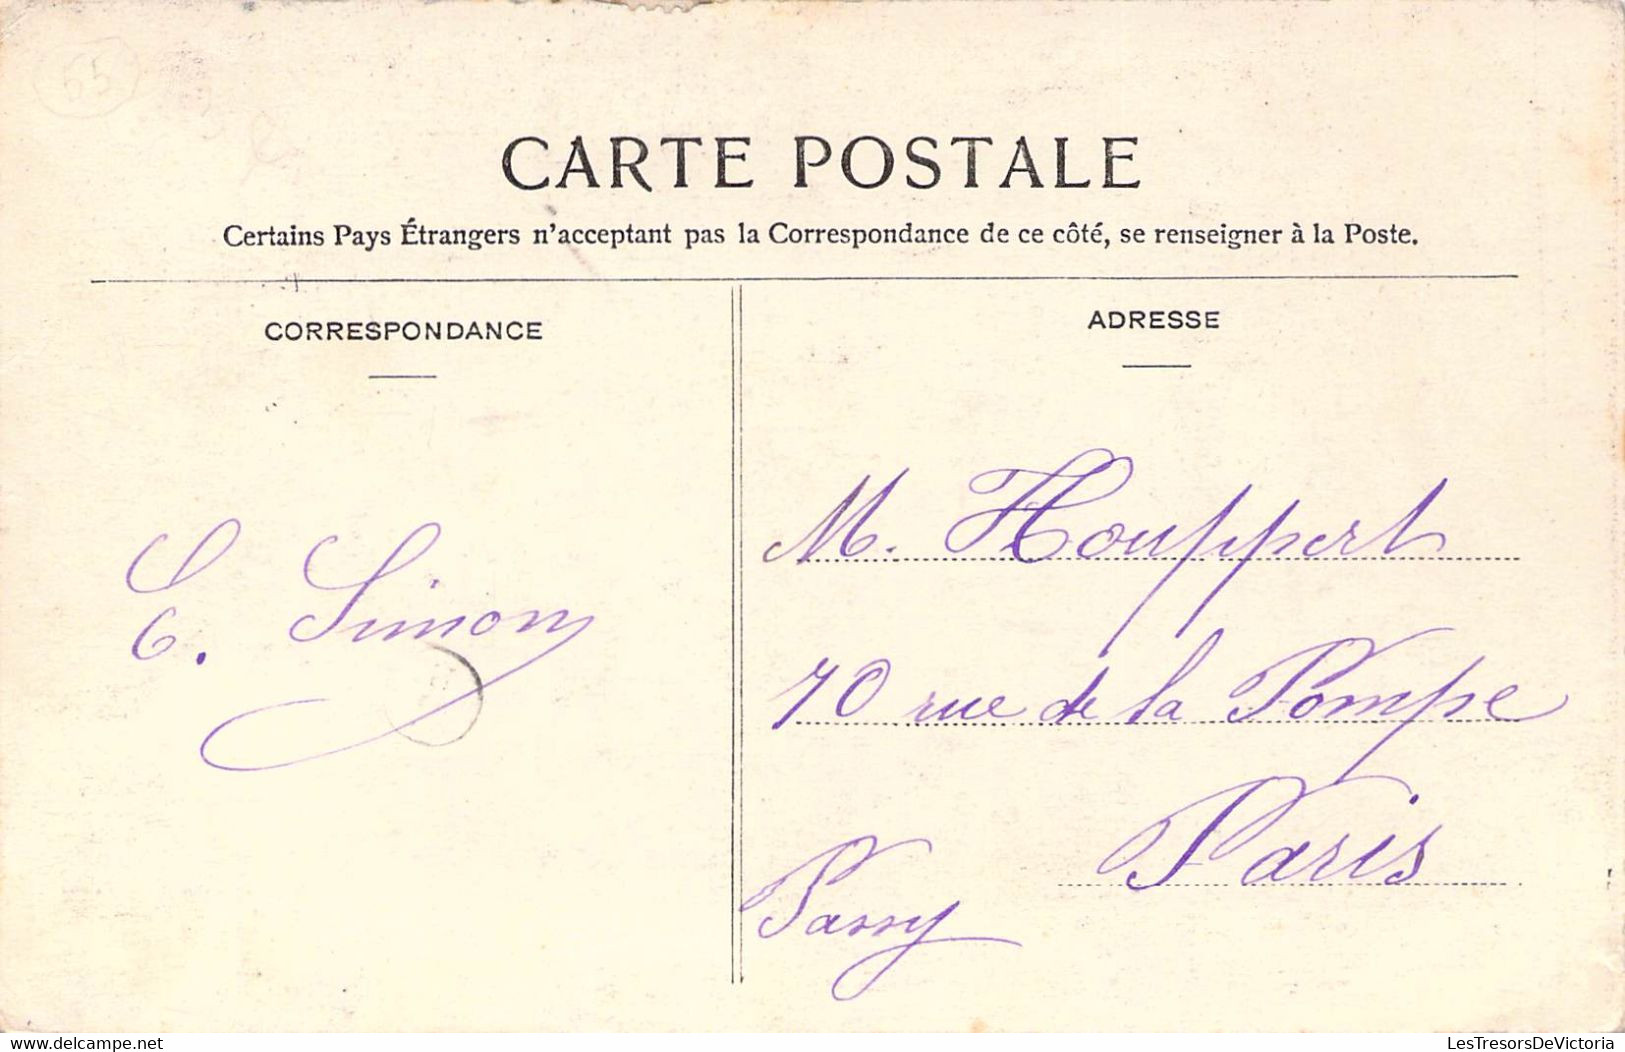 65
CARTE POSTALE
Certains Pays Étrangers n'acceptant pas la Correspondance de ce côté, se renseigner à la Poste.
CORRESPONDANCE
E. Simon
ADRESSE
M. Houppert
70 rue de la Pompe
Paris
Passy
LesTresorsDeVictoria
delcampe.net